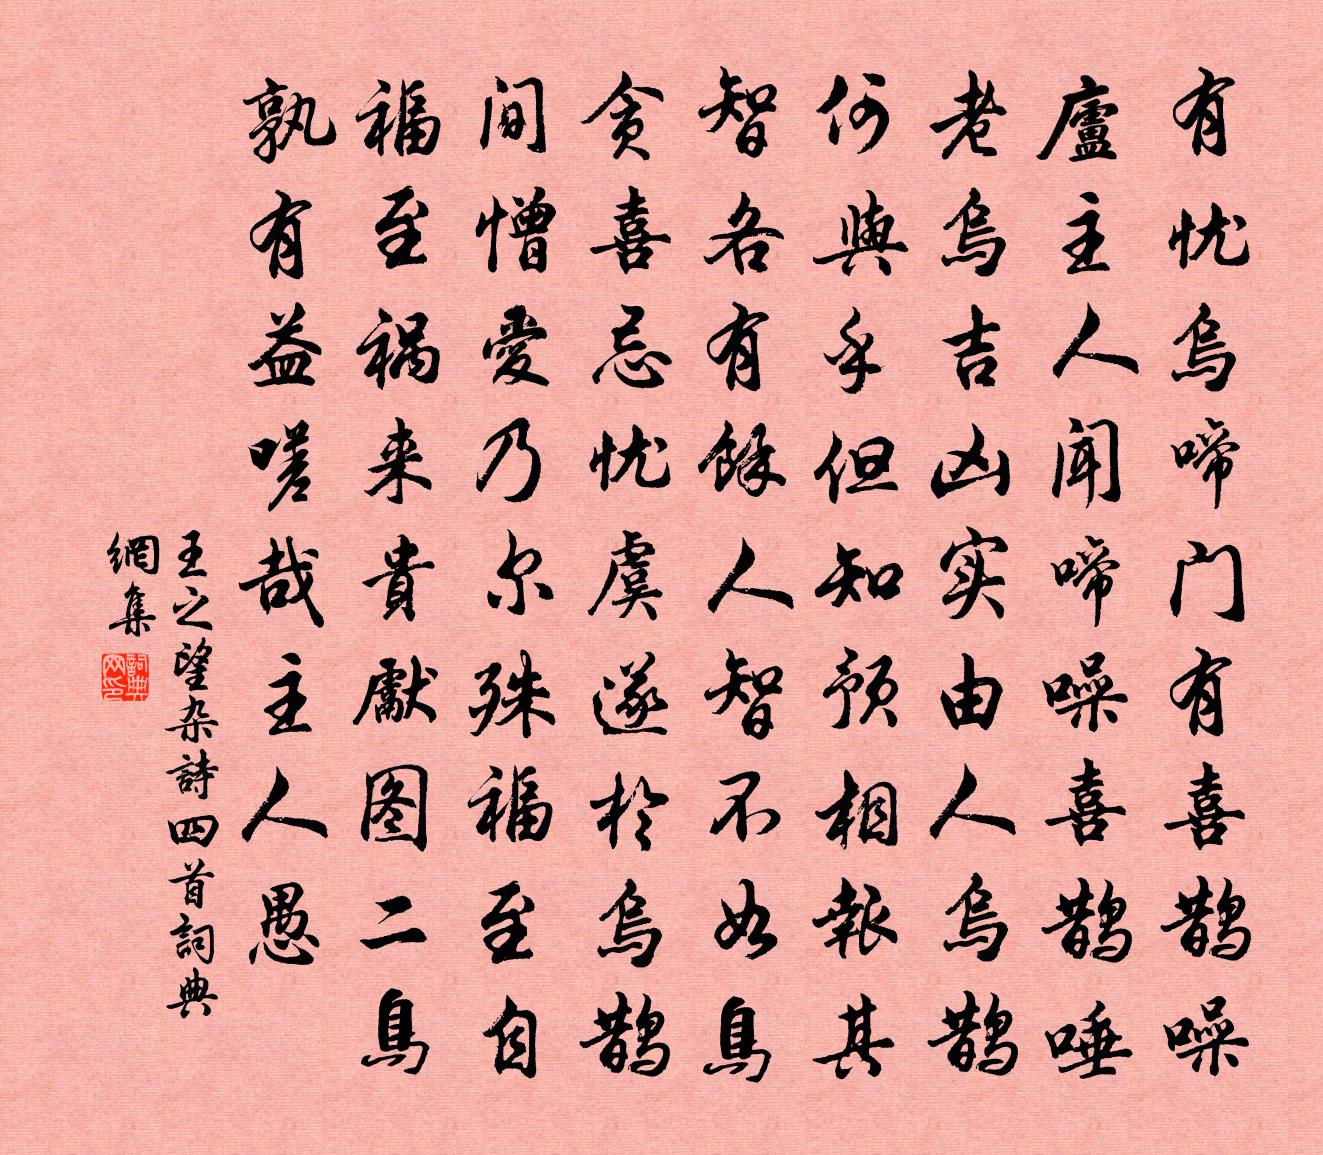 有忧乌啼门有喜鹊噪
廬主人闻啼噪喜鹊唾
老乌吉凶实由人乌鹊
何與乎但知预相報其
智各有餘人智不如鳥
贪喜忌忧虞遂於乌鹊
间憎愛乃尔殊福至自
福至祸来貴獻图二鳥
孰有益嗟哉主人愚
王之望杂詩四首詞典
網集
詞典网印